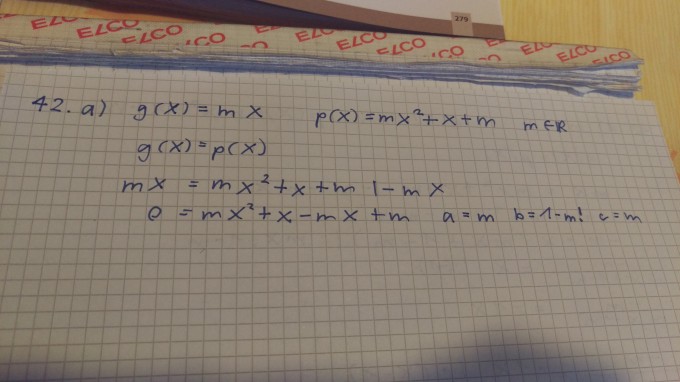 279
ELCO ELCO ELCO ELCO ELCO
ELCO ELCO ELCO ELCO
42. a) g(x) = m x p(x) = mx²+x+m m∈ℝ
g(x) = p(x)
mx = mx²+x+m |-mx
0 = mx²+x-mx+m a=m b=1-m! c=m